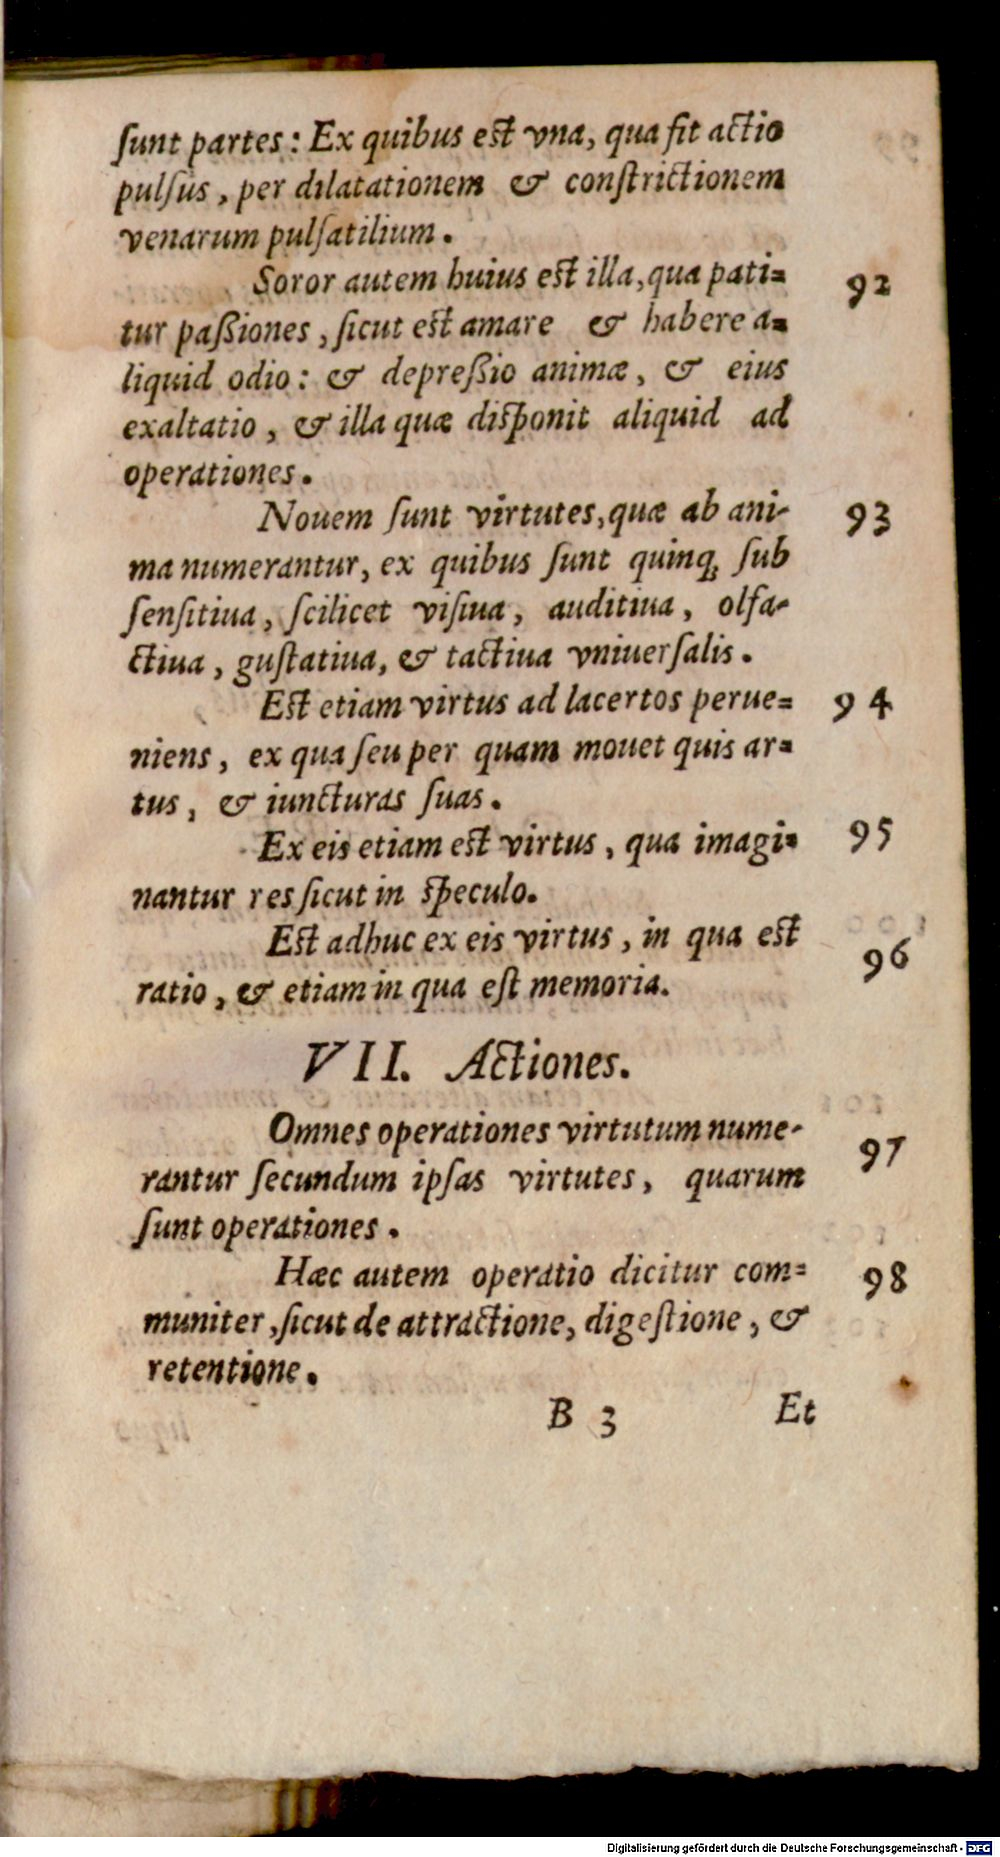 ſunt partes: Ex quibus eſt vna, qua fit actio
pulſus, per dilatationem & conſtrictionem
venarum pulſatilium.
Soror autem huius eſt illa, qua pati= 92
tur paßiones, ſicut eſt amare & habere a=
liquid odio: & depreßio animæ, & eius
exaltatio, & illa quæ diſponit aliquid ad
operationes.
Nouem ſunt virtutes, quæ ab ani- 93
ma numerantur, ex quibus ſunt quinq; ſub
ſenſitiua, ſcilicet viſiua, auditiua, olfa-
ctiua, guſtatiua, & tactiua vniuerſalis.
Eſt etiam virtus ad lacertos perue= 94
niens, ex qua ſeu per quam mouet quis ar=
tus, & iuncturas ſuas.
Ex eis etiam eſt virtus, qua imagi= 95
nantur res ſicut in ſpeculo.
Eſt adhuc ex eis virtus, in qua eſt 96
ratio, & etiam in qua eſt memoria.
VII. Actiones.
Omnes operationes virtutum nume- 97
rantur ſecundum ipſas virtutes, quarum
ſunt operationes.
Hæc autem operatio dicitur com= 98
muniter, ſicut de attractione, digeſtione, &
retentione.
B 3 Et
Digitalisierung gefördert durch die Deutsche Forschungsgemeinschaft - DFG